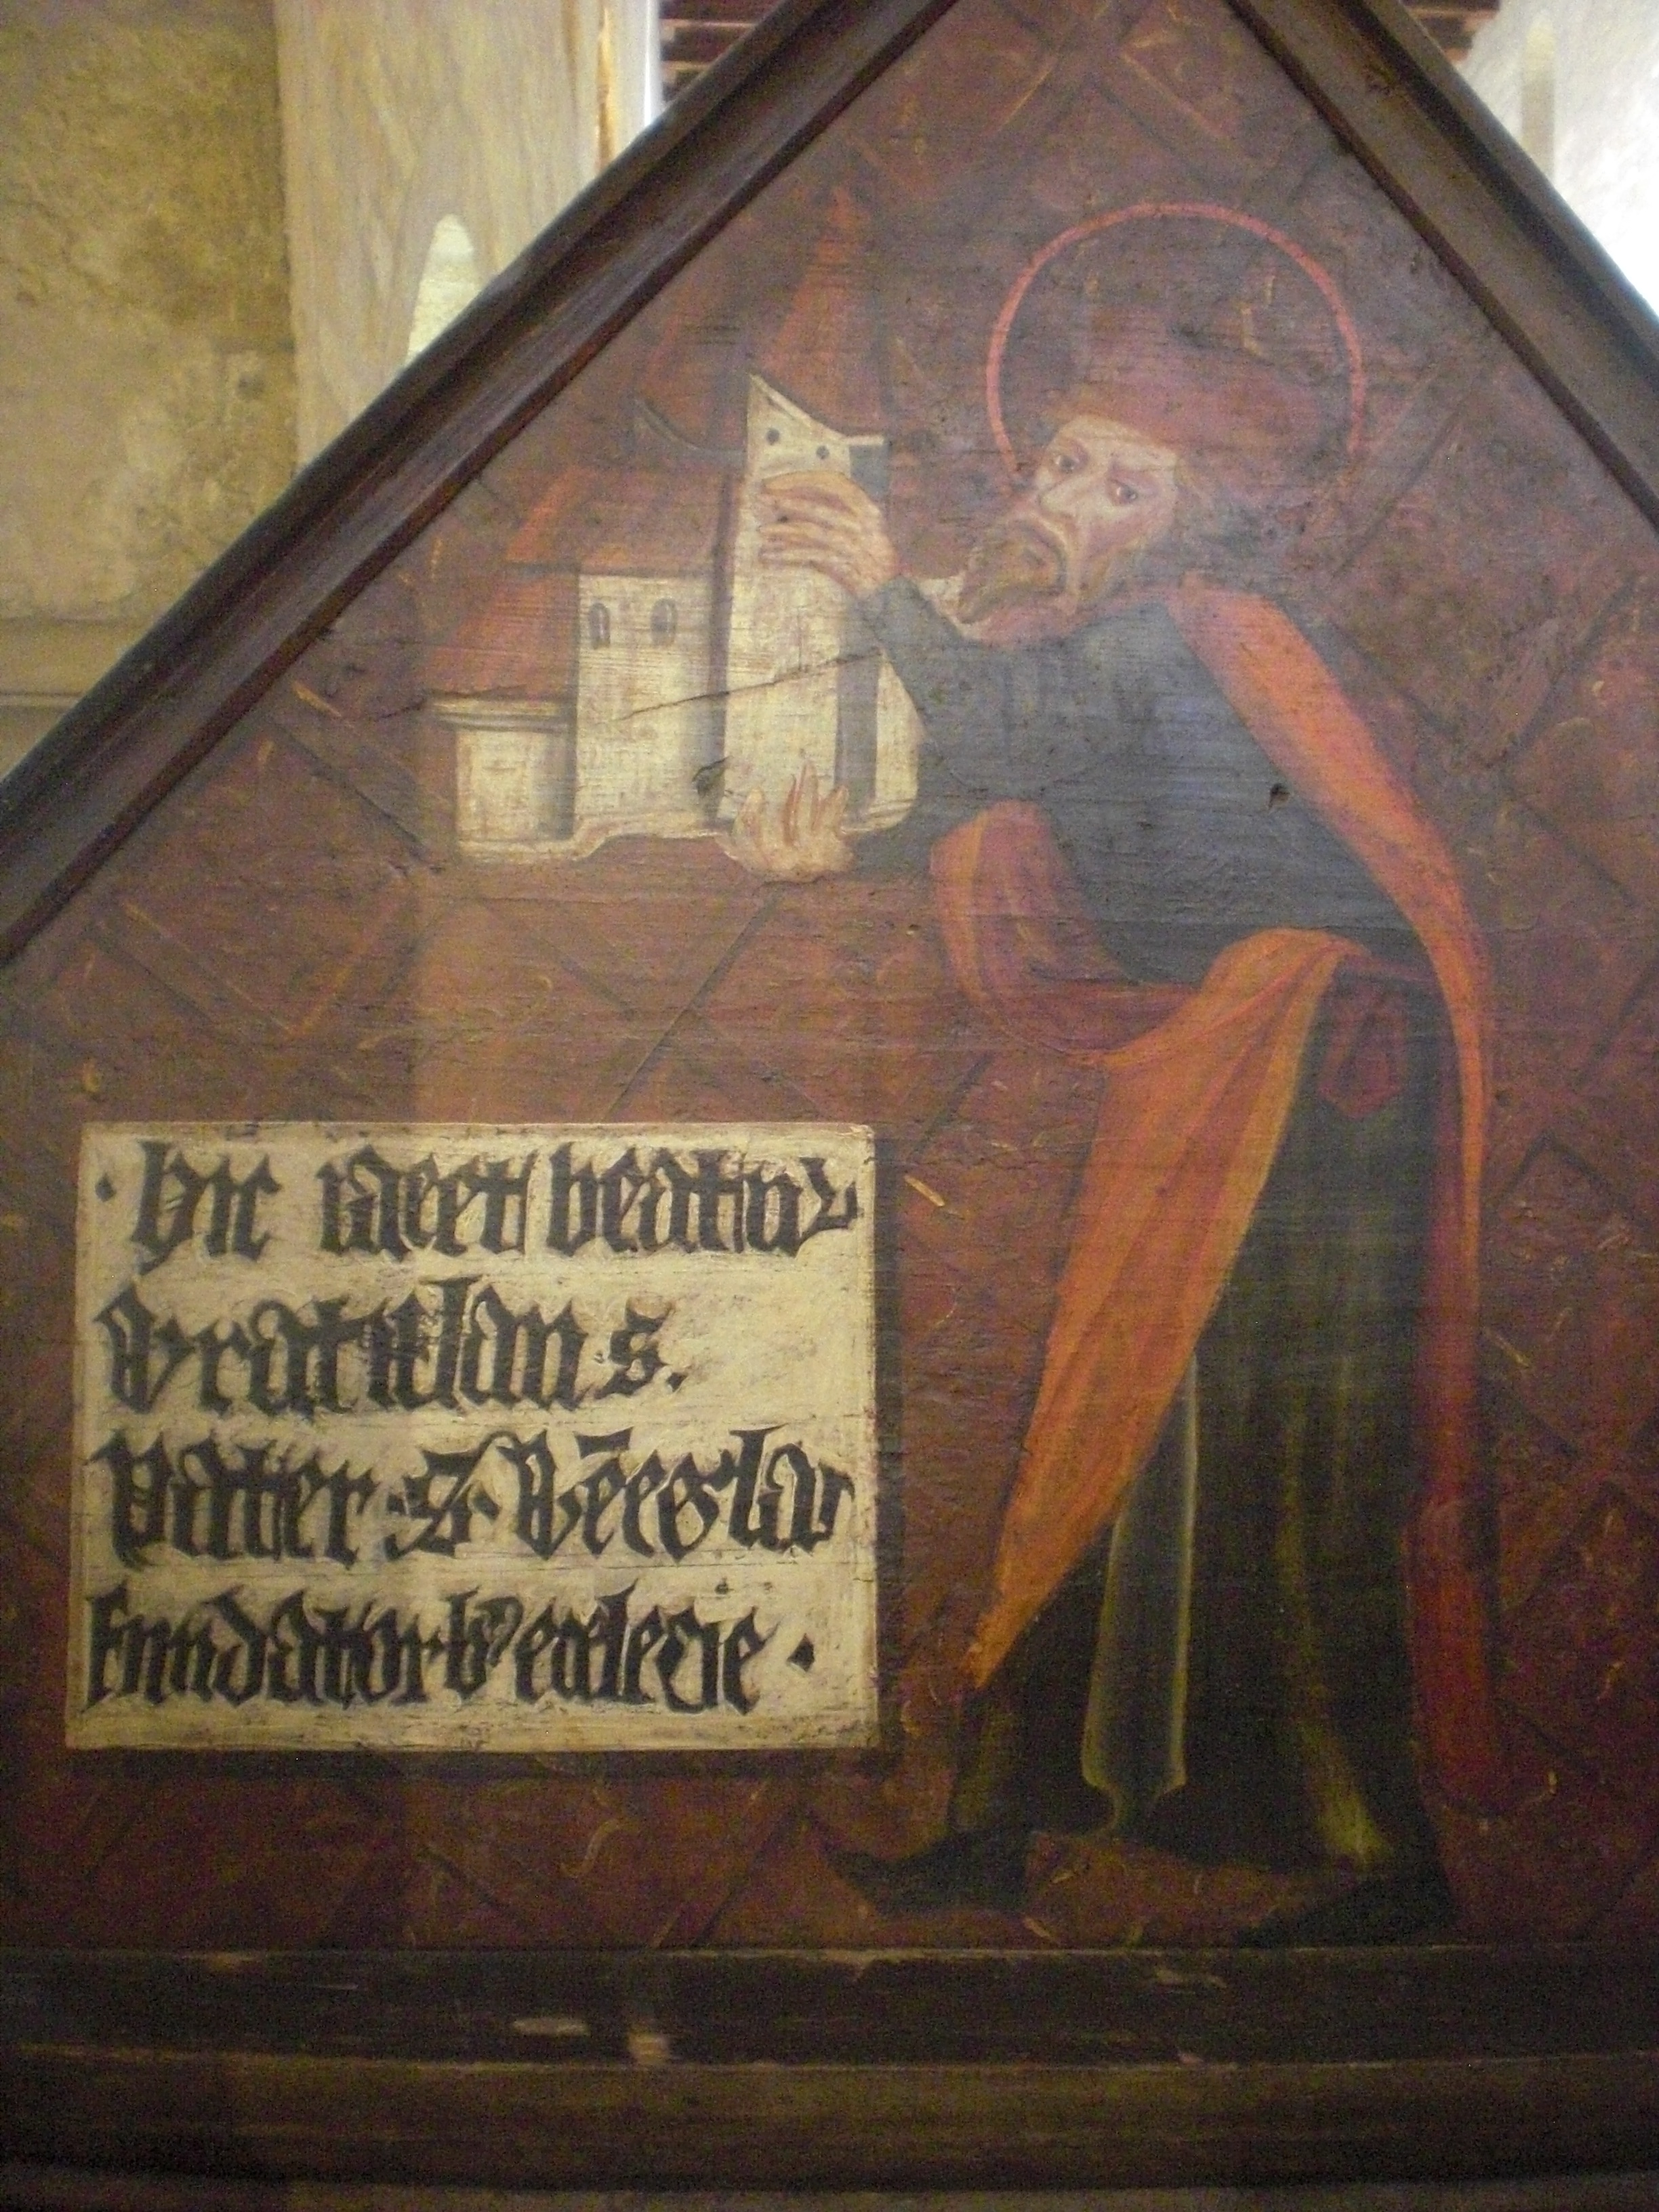 · hic iacet beatus
wratislaus · s ·
pater · S · Wēceslai
fundator hꝰ ecclesie ·